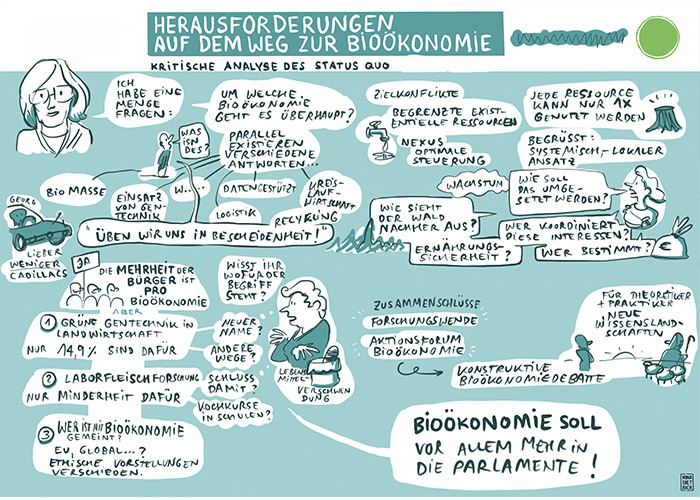 HERAUSFORDERUNGEN
AUF DEM WEG ZUR BIOÖKONOMIE
KRITISCHE ANALYSE DES STATUS QUO
ICH
HABE EINE
MENGE
FRAGEN:
UM WELCHE
BIOÖKONOMIE
GEHT ES ÜBERHAUPT?
WAS
ISN
DES?
PARALLEL
EXISTIEREN
VERSCHIEDENE
ANTWORTEN...
BIOMASSE
EINSATZ
VON GEN
TECHNIK
W.....
DATENGESTÜTZT
LOGISTIK
KREIS-
LAUF-
WIRTSCHAFT
RECYKLING
GEORG
"ÜBEN WIR UNS IN BESCHEIDENHEIT!"
LIEBER
WENIGER
CADILLACS
ZIELKONFLIKTE
BEGRENZTE EXIST-
ENTIELLE RESSOURCEN
NEXUS
OPTIMALE
STEUERUNG
JEDE RESSOURCE
KANN NUR 1X
GENUTZT WERDEN
BEGRÜSST:
SYSTEMISCH-LOKALER
ANSATZ
WACHSTUM
WIE SOLL
DAS UMGE-
SETZT WERDEN?
WIE SIEHT
DER WALD
NACHHER AUS?
WER KOORDINIERT
DIESE INTERESSEN?
ERNÄHRUNGS-
SICHERHEIT?
WER BESTIMMT?
€
JA
DIE MEHRHEIT DER
BÜRGER IST
PRO
BIOÖKONOMIE
ABER
WISST IHR
WOFÜR DER
BEGRIFF
STEHT?
1 GRÜNE GENTECHNIK IN
LANDWIRTSCHAFT
NUR 14,9% SIND DAFÜR
NEUER
NAME?
ANDERE
WEGE?
2 LABORFLEISCHFORSCHUNG
NUR MINDERHEIT DAFÜR
SCHLUSS
DAMIT?
KOCHKURSE
IN SCHULEN?
3 WER IST MIT BIOÖKONOMIE
GEMEINT?
EU, GLOBAL...?
ETHISCHE VORSTELLUNGEN
VERSCHIEDEN.
LEBENS
MITTEL-
VERSCHWEN
DUNG
ZUSAMMENSCHLÜSSE
FORSCHUNGSWENDE
AKTIONSFORUM
BIOÖKONOMIE
KONSTRUKTIVE
BIOÖKONOMIEDEBATTE
FÜR THEORETIKER
+ PRAKTIKER
NEUE
WISSENSLAND-
SCHAFTEN
BIOÖKONOMIE SOLL
VOR ALLEM MEHR IN
DIE PARLAMENTE!